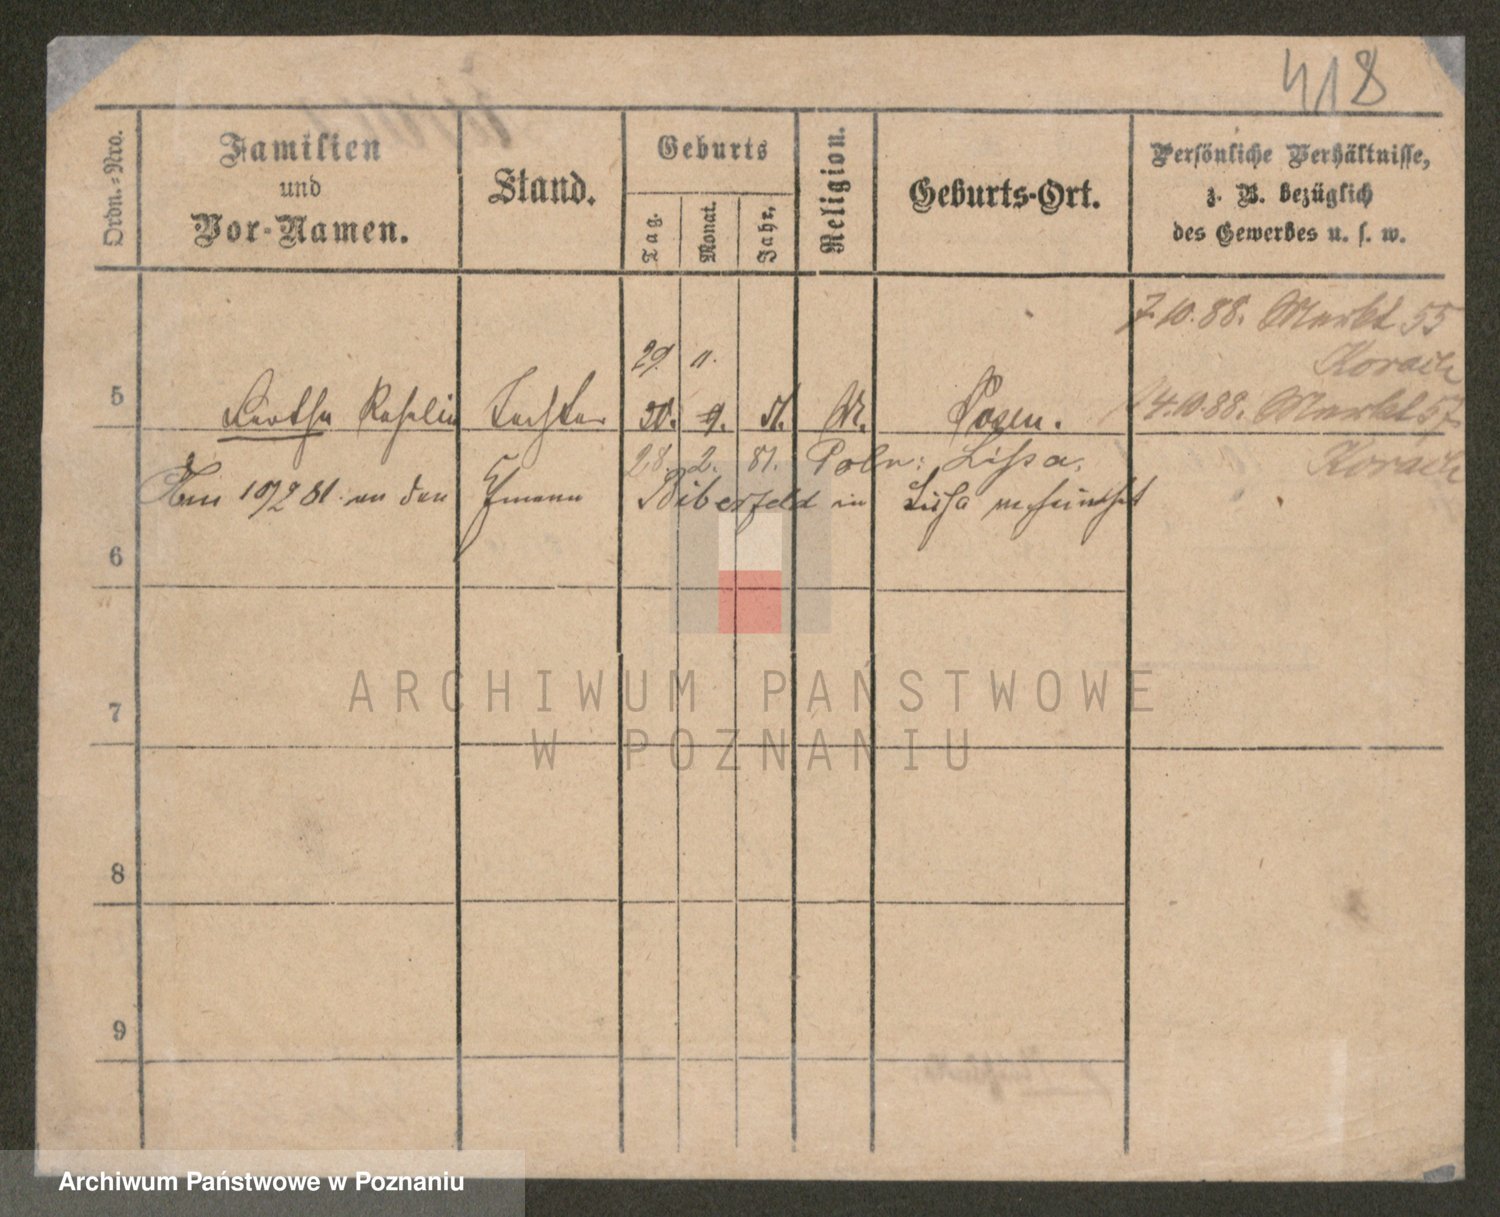 418
Ordn.-Nro.
Familien
und
Vor-Namen.
Stand.
Geburts
Tag.
Monat.
Jahr.
Religion.
Geburts-Ort.
Persönliche Verhältnisse,
z. B. bezüglich
des Gewerbes u. s. w.
7.10.88. Markt 55
Korach
29. 11.
5 Bertha Tochter 30. 9. 51. M. Posen. 14.10.88. Markt 57
Korach
28. 2. 81. Poln: Lissa.
Am 10/2 81 an den Biberfeld in Lissa verheirathet
6
7
8
9
ARCHIWUM PAŃSTWOWE
W POZNANIU
Archiwum Państwowe w Poznaniu